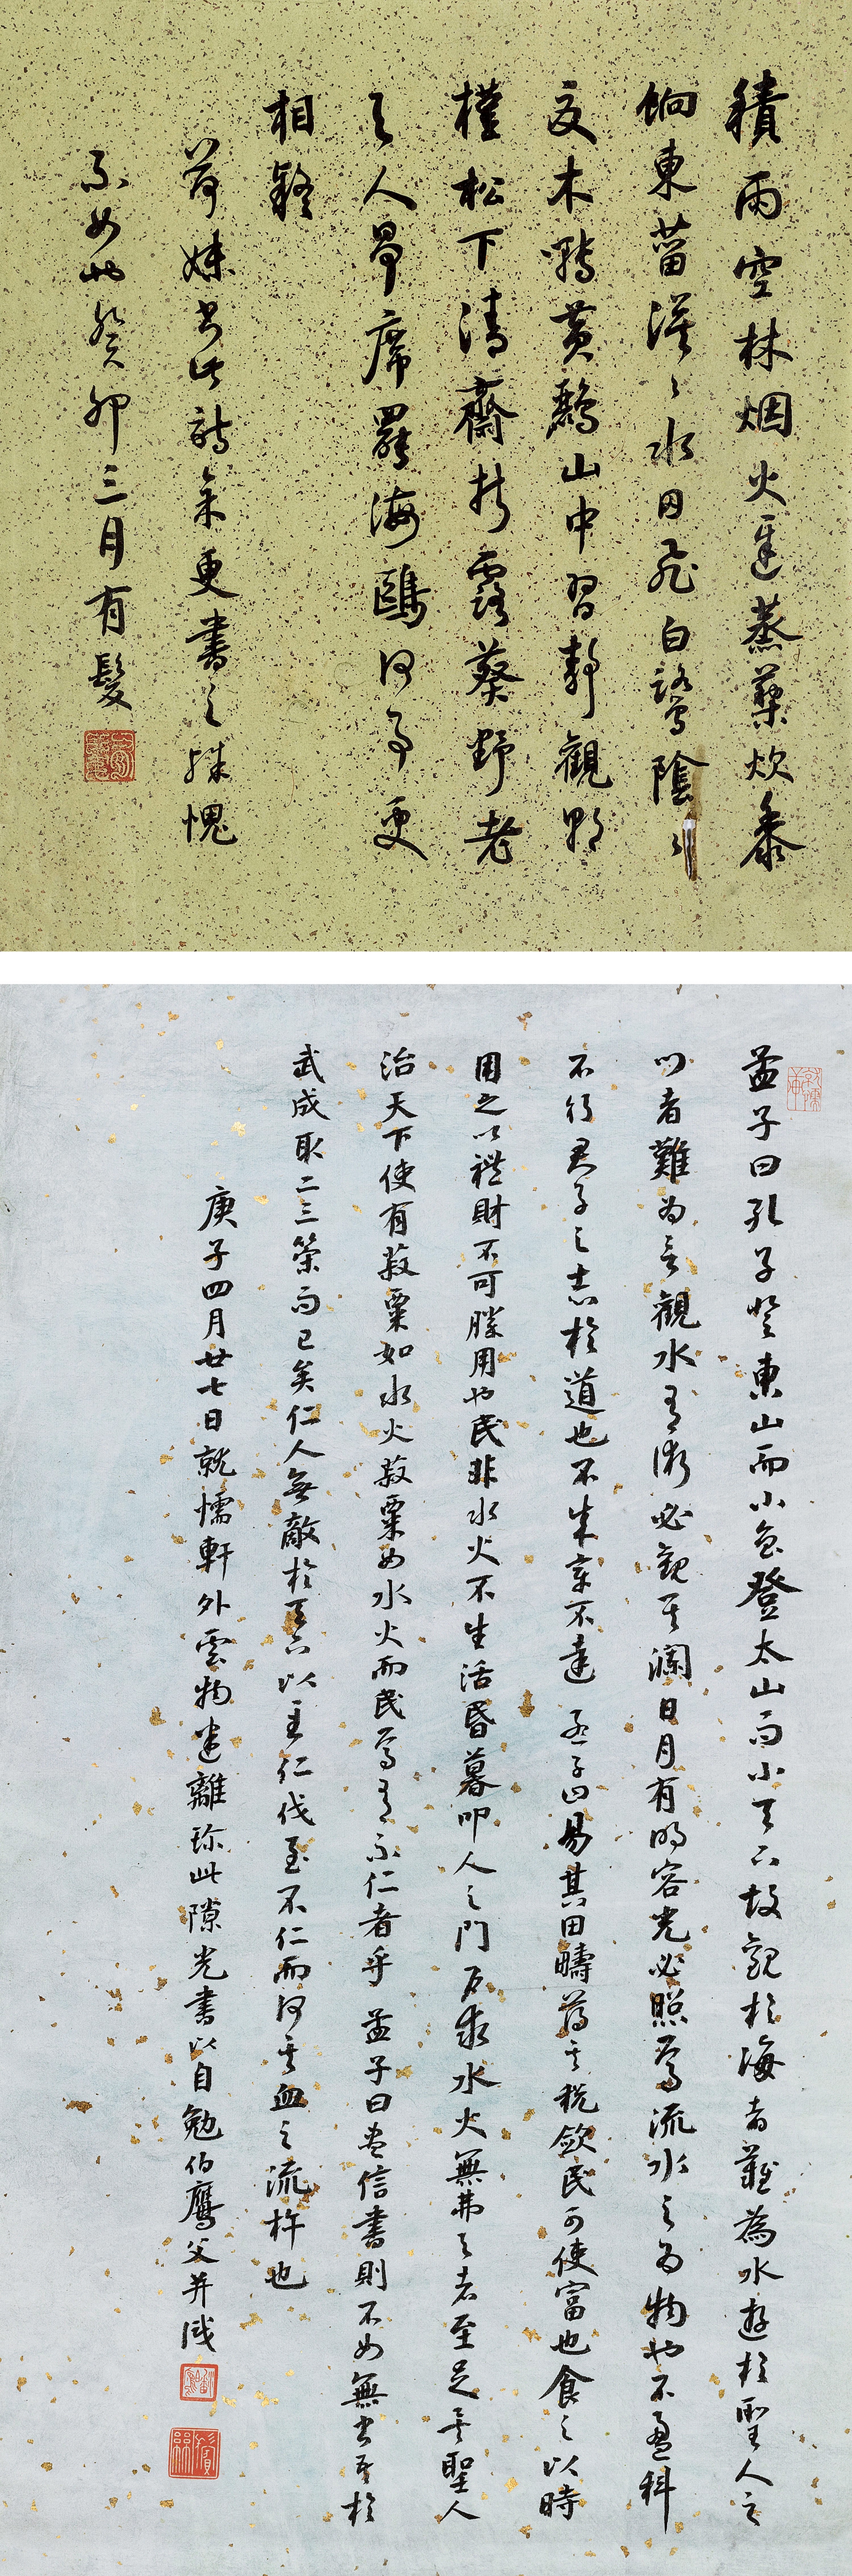 積雨空林烟火遲蒸藜炊黍
餉東菑漠〻水田飛白鷺陰〻
夏木囀黃鸝山中習靜觀朝
槿松下清齋折露葵野老
與人爭席罷海鷗何事更
相疑
荷妹書此詩矣更書之殊愧
不如也癸卯三月有髮
孟子曰孔子登東山而小魯登太山而小天下故觀於海者難為水遊於聖人之
門者難為言觀水有術必觀其瀾日月有明容光必照焉流水之為物也不盈科
不行君子之志於道也不成章不達 孟子曰易其田疇薄其稅斂民可使富也食之以時
用之以禮財不可勝用也民非水火不生活昏暮叩人之門戶求水火無弗與者至足矣聖人
治天下使有菽粟如水火菽粟如水火而民焉有不仁者乎 孟子曰盡信書則不如無書吾於
武成取二三策而已矣仁人無敵於天下以至仁伐至不仁而何其血之流杵也
庚子四月廿七日就懦軒外雲物迷離珍此隙光書以自勉伯鷹父并識